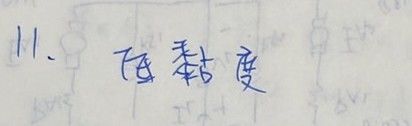 11. 黏度